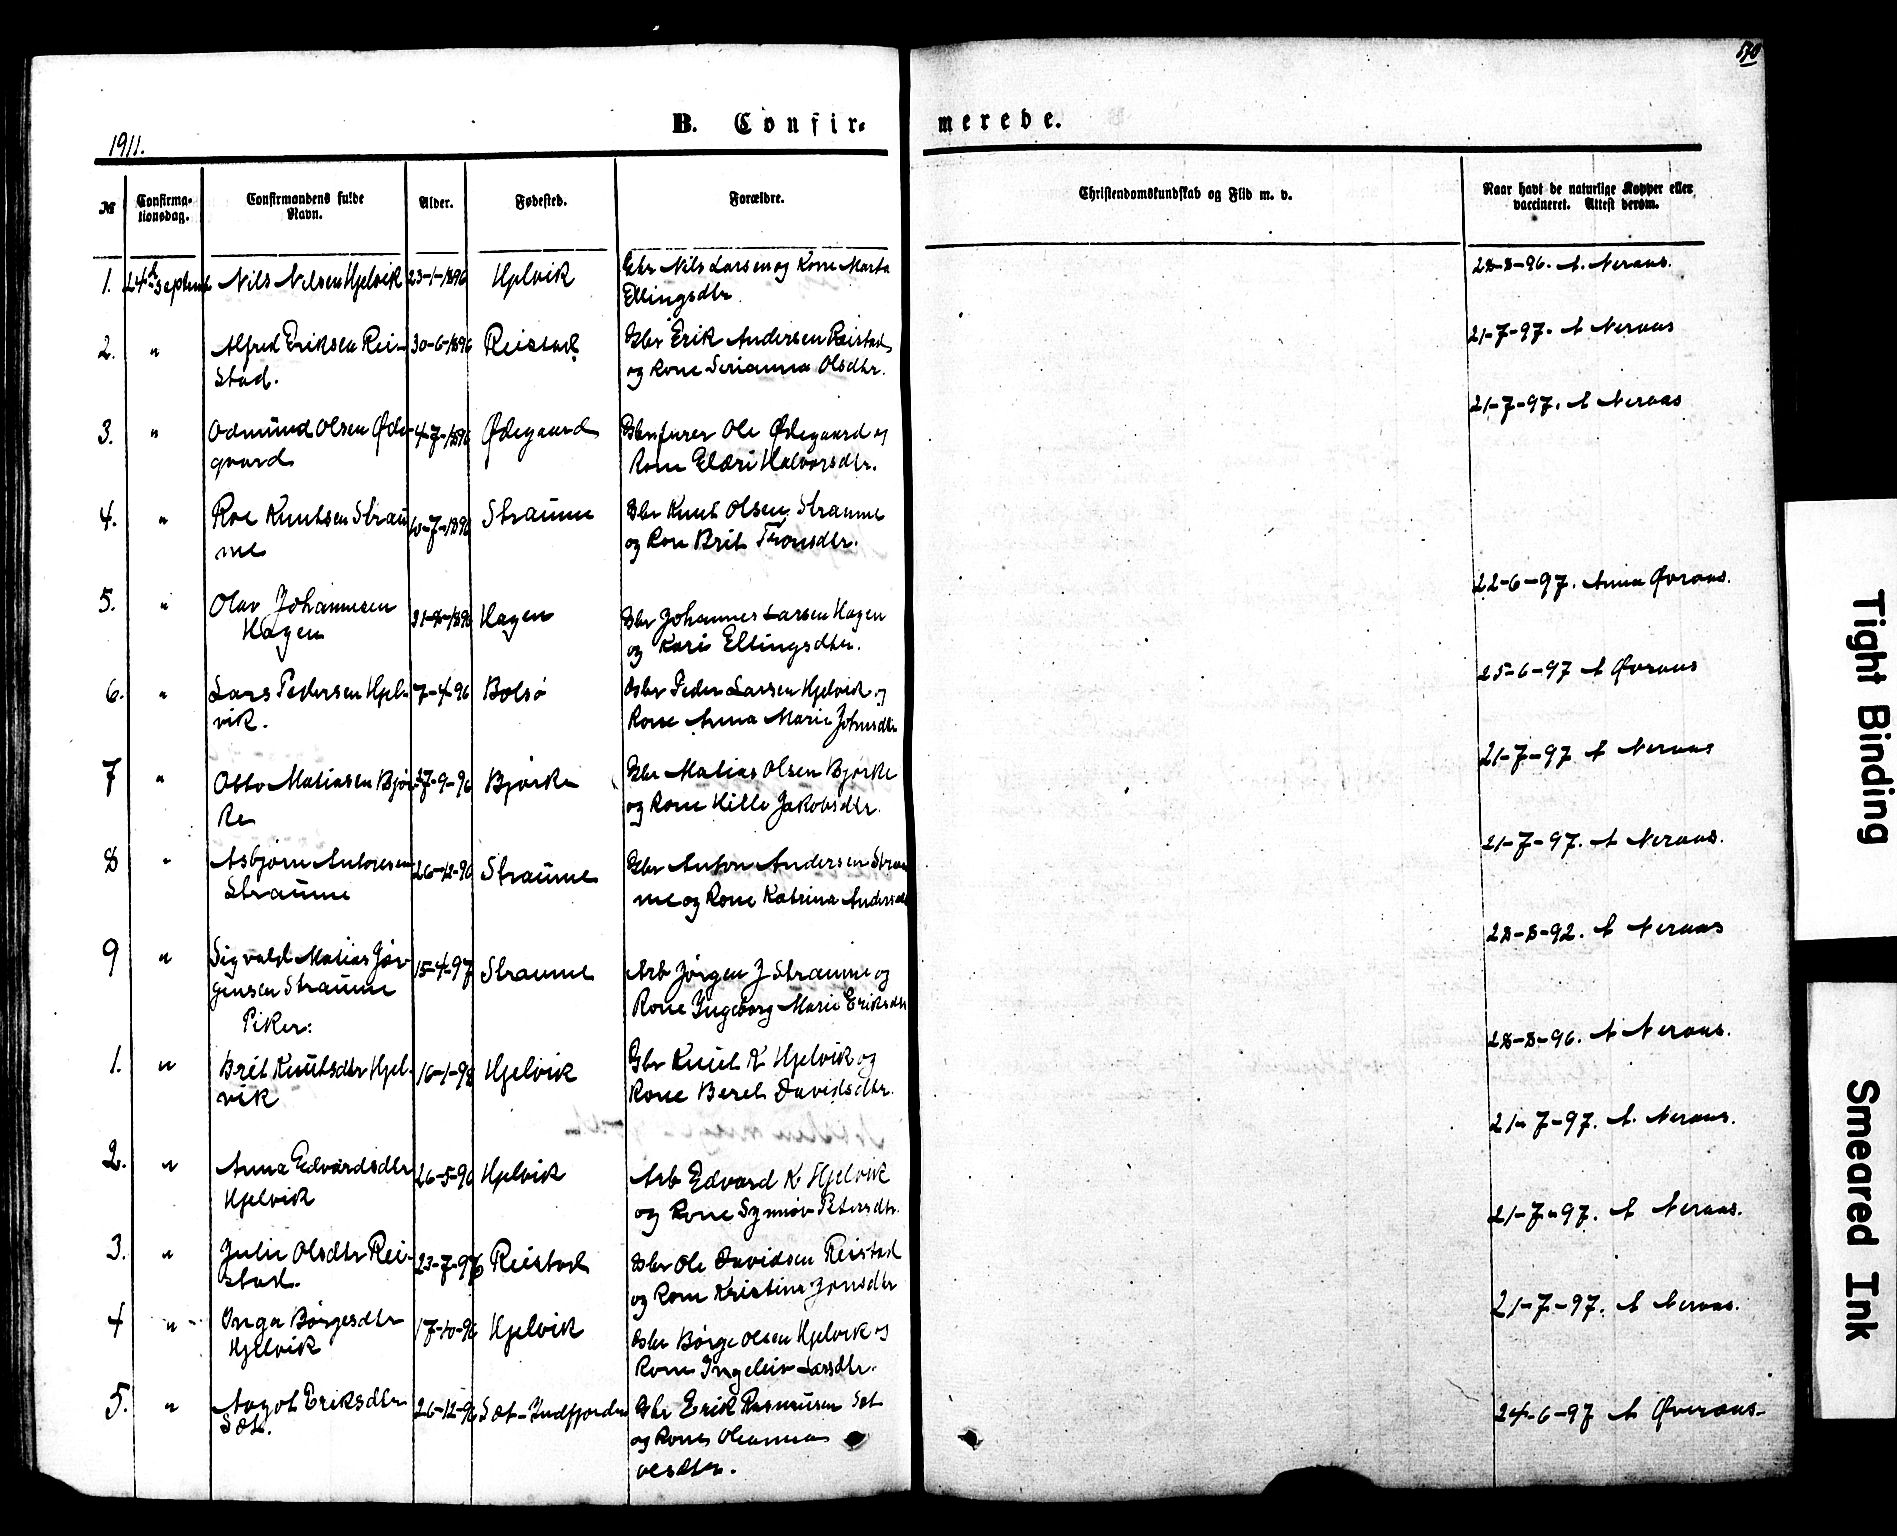 1911.
B. Confir-
merede.
№
Confirma-
tionsdag.
Confirmandens fulde
Navn.
Alder.
Fødested.
Forældre.
Christendomskundskab og Flid m. v.
Naar havt de naturlige Kopper eller
vaccineret. Attest derom.
1. 24de september Nils Nilsen Hjelvik 23-1-1896 Hjelvik Gbr Nils Larsen og Kone Marta
Ellingsdtr. 28-8-96. A. Neraas.
2. " Alfred Eriksen Rei- 30-6-1896 Reistad Gbr Erik Andersen Reistad
stad. og Kone Serianna Olsdtr. 21-7-97. A Neraas
3. " Odmund Olsen Øde- 4-7-1896 Ødegaard Ole Ødegaard og
gaard Kone Halvorsdtr. 21-7-97. A Neraas
4. " Roe Knutsen Strau 10-7-1896 Straume Gbr Knut Olsen Straume
me og Kone Brit Tronsdtr.
5. " Olav Johannesen 31-8-1896 Hagen Gbr Johannes Larsen Hagen
Hagen og Kari Ellingsdtr. 22-6-97. Anna Øveraas.
6. " Lars Pedersen Hjel- 7-4-96 Bolsø Gbr Peder Larsen Hjelvik og
vik. Kone Anna Marie Johnsdtr 25-6-97 A Øveraas
7 " Otto Matiasen Bjør 27-9-96 Bjørke Gbr Matias Olsen Bjørke
ke og Kone Hille Jakobsdtr. 21-7-97 A Neraas
8 " Asbjørn Antonesen 26-12-96 Straume Gbr Anton Andersen Strau
Straume me og Kone Katrina Andersdtr 21-7-97. A Neraas.
9 " Sigvald Matias Jør 15-4-97 Straume Arb Jørgen J Straume og
gensen Straume Kone Ingeborg Marie Eriksdtr 28-8-92. A Neraas
Piker:
1. " Brit Knutsdtr Hjel- 16-1-96 Hjelvik Gbr Knut K Hjelvik og
vik Kone Beret Davidsdtr. 28-8-96. A Neraas.
2. " Anna Edvardsdtr 26-5-96 Hjelvik Arb Edvard K Hjelvik
Hjelvik og Kone Synnøv Petersdtr. 21-7-97. A. Neraas.
3. " Julie Olsdtr Rei- 23-7-96 Reistad Gbr Ole Davidsen Reistad
stad. og Kone Kristina Jonsdtr 21-7-97. A Neraas.
4 " Inga Børgesdtr 17-10-96 Hjelvik Gbr Børge Olsen Hjelvik og
Hjelvik Kone Ingeleiv Larsdtr. 21-7-97. A Neraas.
5. " Aagot Eriksdtr 26-12-96 Sæt-Indfjorden Gbr Erik Rasmusen Sæt
Sæt. og Kone Oleanna
Olsdtr. 24-6-97 A Øveraas
Tight Binding
Smeared Ink